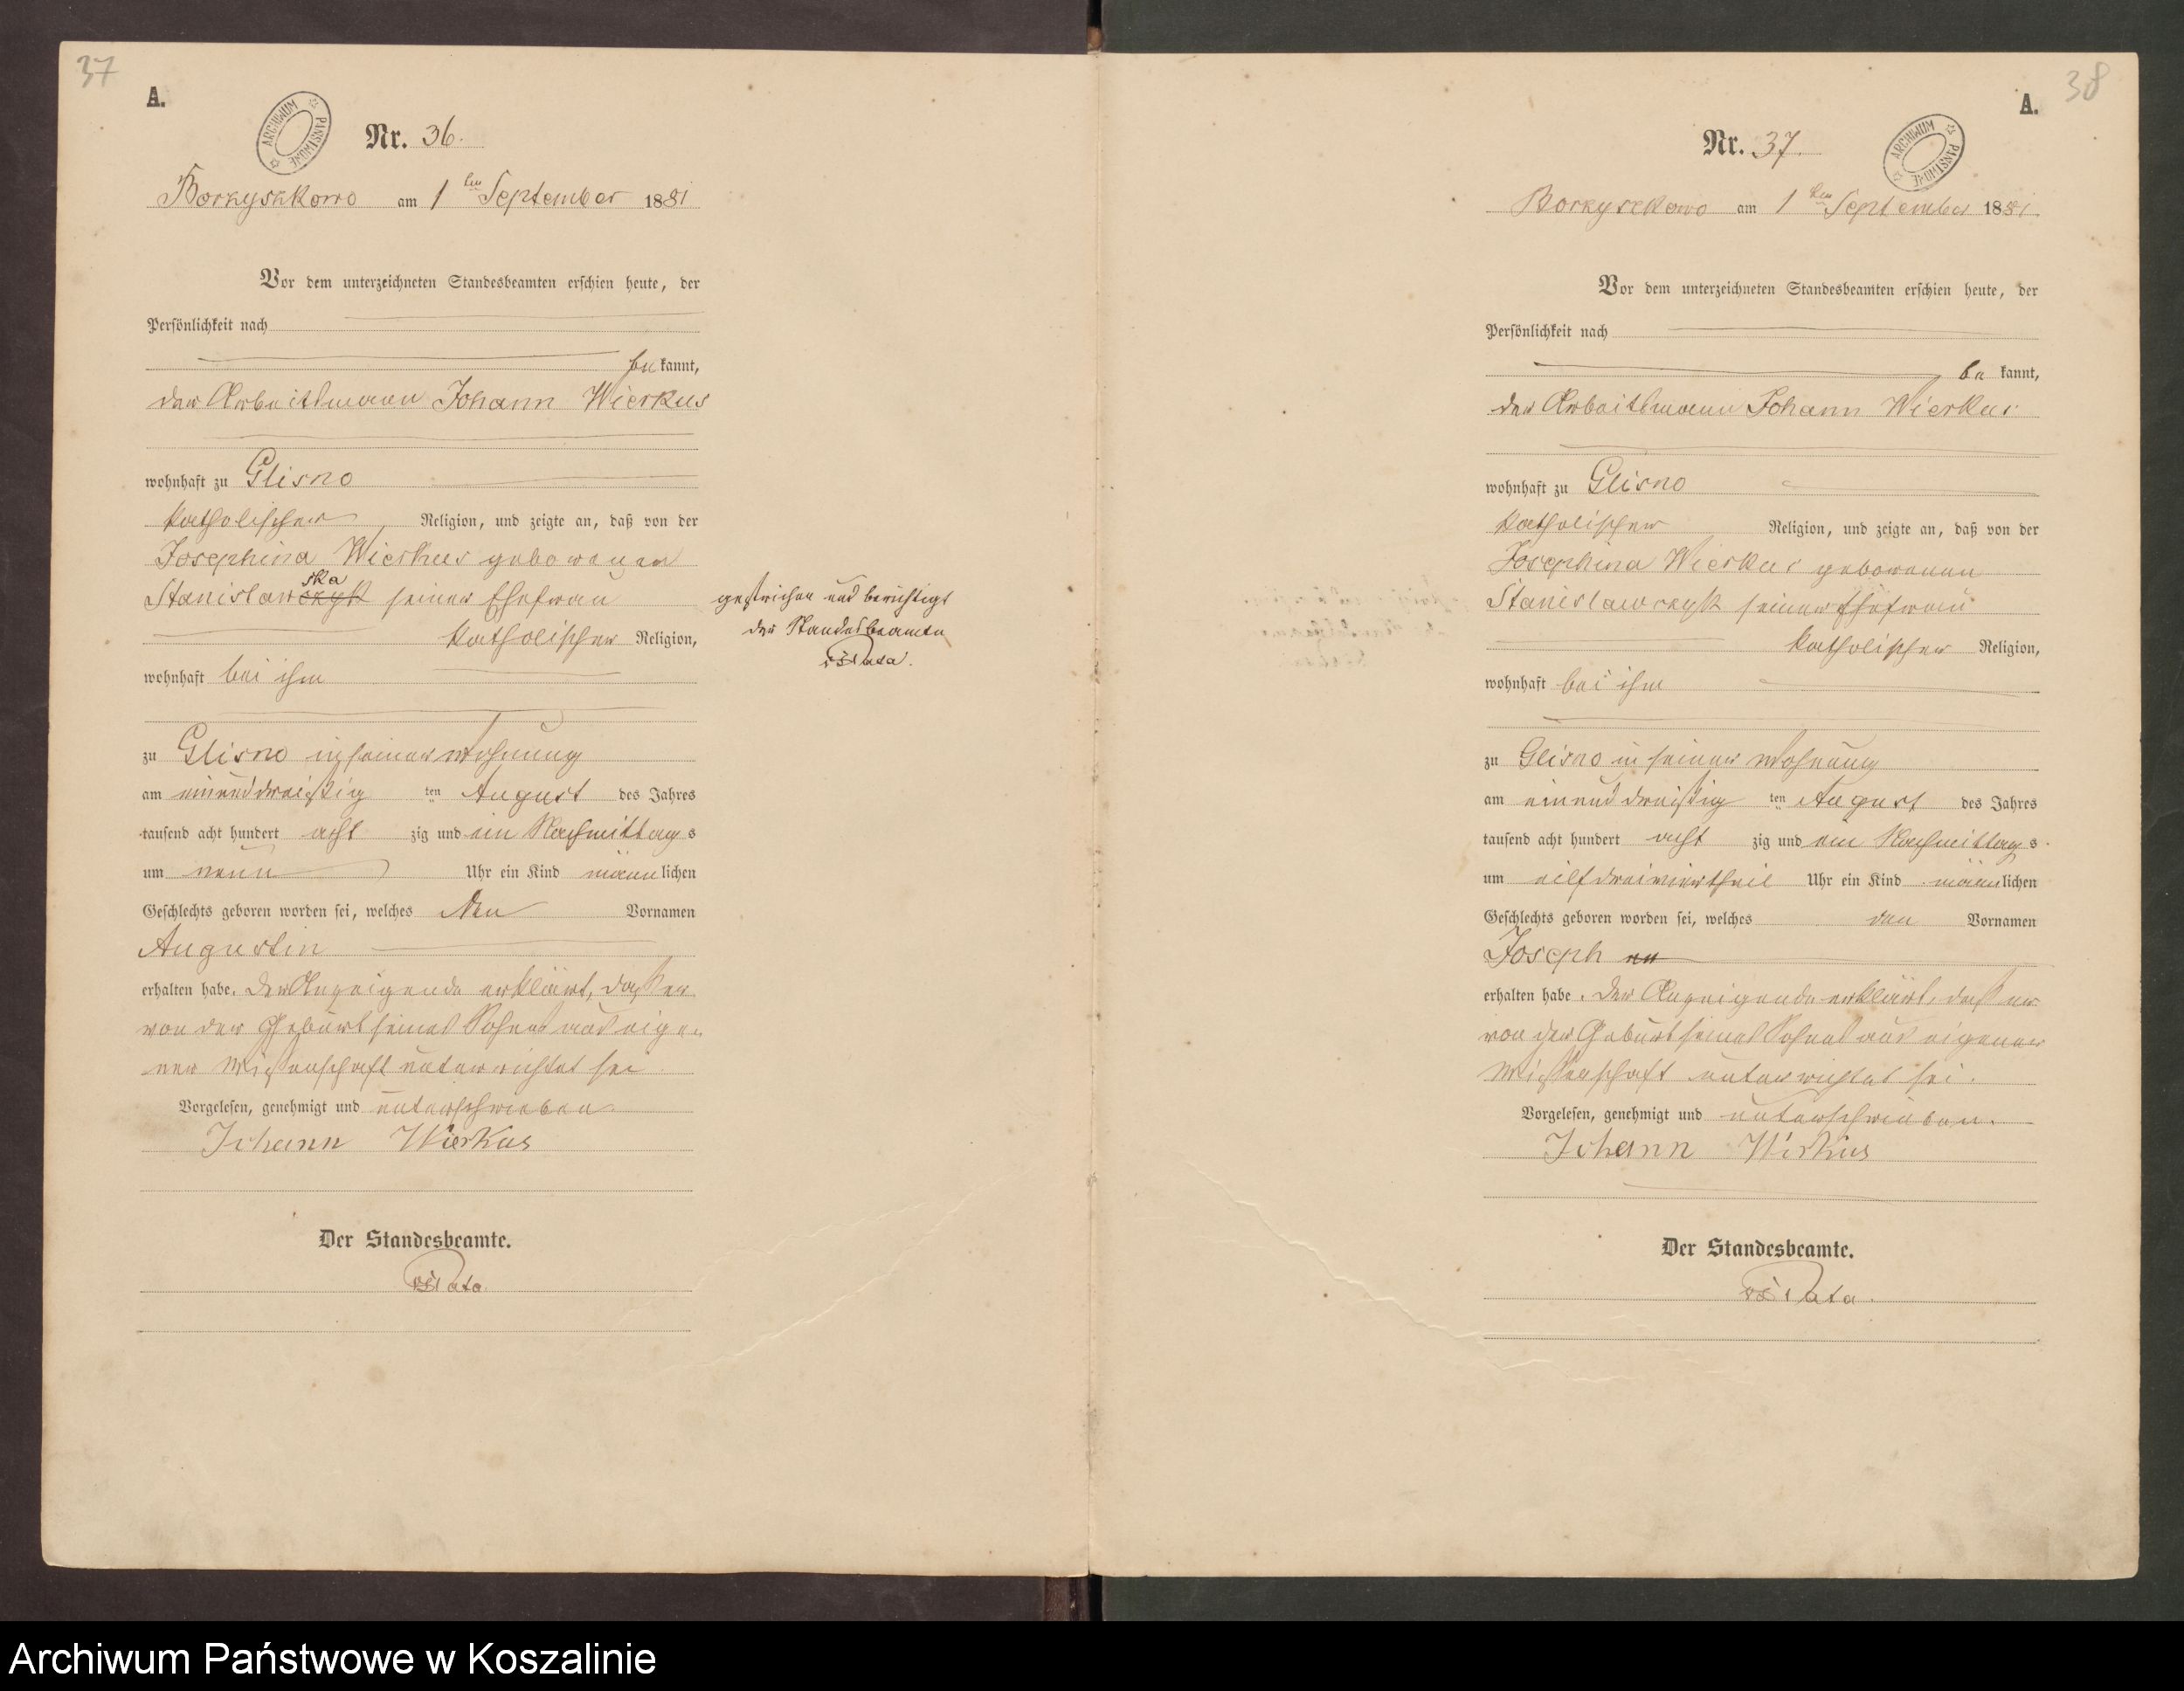 37
A.
ARCHIWUM PAŃSTWOWE
Nr. 36.
Borzyszkowo am 1 ten September 1881
Vor dem unterzeichneten Standesbeamten erschien heute, der
Persönlichkeit nach
be kannt,
der Arbeitsmann Johann Wierkus
wohnhaft zu Glisno
katholischer Religion, und zeigte an, daß von der
Josephina Wierkus geborenen
ska
Stanislawczyk seiner Ehefrau
katholischer Religion,
wohnhaft bei ihm
zu Glisno in seiner Wohnung
am einunddreißig ten August des Jahres
tausend acht hundert acht zig und ein Nachmittags
um neun Uhr ein Kind männlichen
Geschlechts geboren worden sei, welches den Vornamen
Augustin
erhalten habe. Der Anzeigende erklärt, daß er
von der Geburt seines Sohnes aus eige-
ner Wißenschaft unterrichtet sei
Vorgelesen, genehmigt und unterschrieben
Johann Wierkus
Der Standesbeamte.
gestrichen und berichtigt
der Standesbeamte
38
A.
ARCHIWUM PAŃSTWOWE
Nr. 37.
Borzyszkowo am 1 ten September 1881.
Vor dem unterzeichneten Standesbeamten erschien heute, der
Persönlichkeit nach
be kannt,
der Arbeitsmann Johann Wierkus
wohnhaft zu Glisno
katholischer Religion, und zeigte an, daß von der
Josephina Wierkus geborenen
Stanislawczyk seiner Ehefrau
katholischer Religion,
wohnhaft bei ihm
zu Glisno in seiner Wohnung
am einunddreißig ten August des Jahres
tausend acht hundert acht zig und ein Nachmittags
um eilf dreiviertheil Uhr ein Kind männlichen
Geschlechts geboren worden sei, welches den Vornamen
Joseph
erhalten habe. Der Anzeigende erklärt, daß er
von der Geburt seines Sohnes aus eigener
Wißenschaft unterrichtet sei.
Vorgelesen, genehmigt und unterschrieben.
Johann Wirkus
Der Standesbeamte.
Archiwum Państwowe w Koszalinie